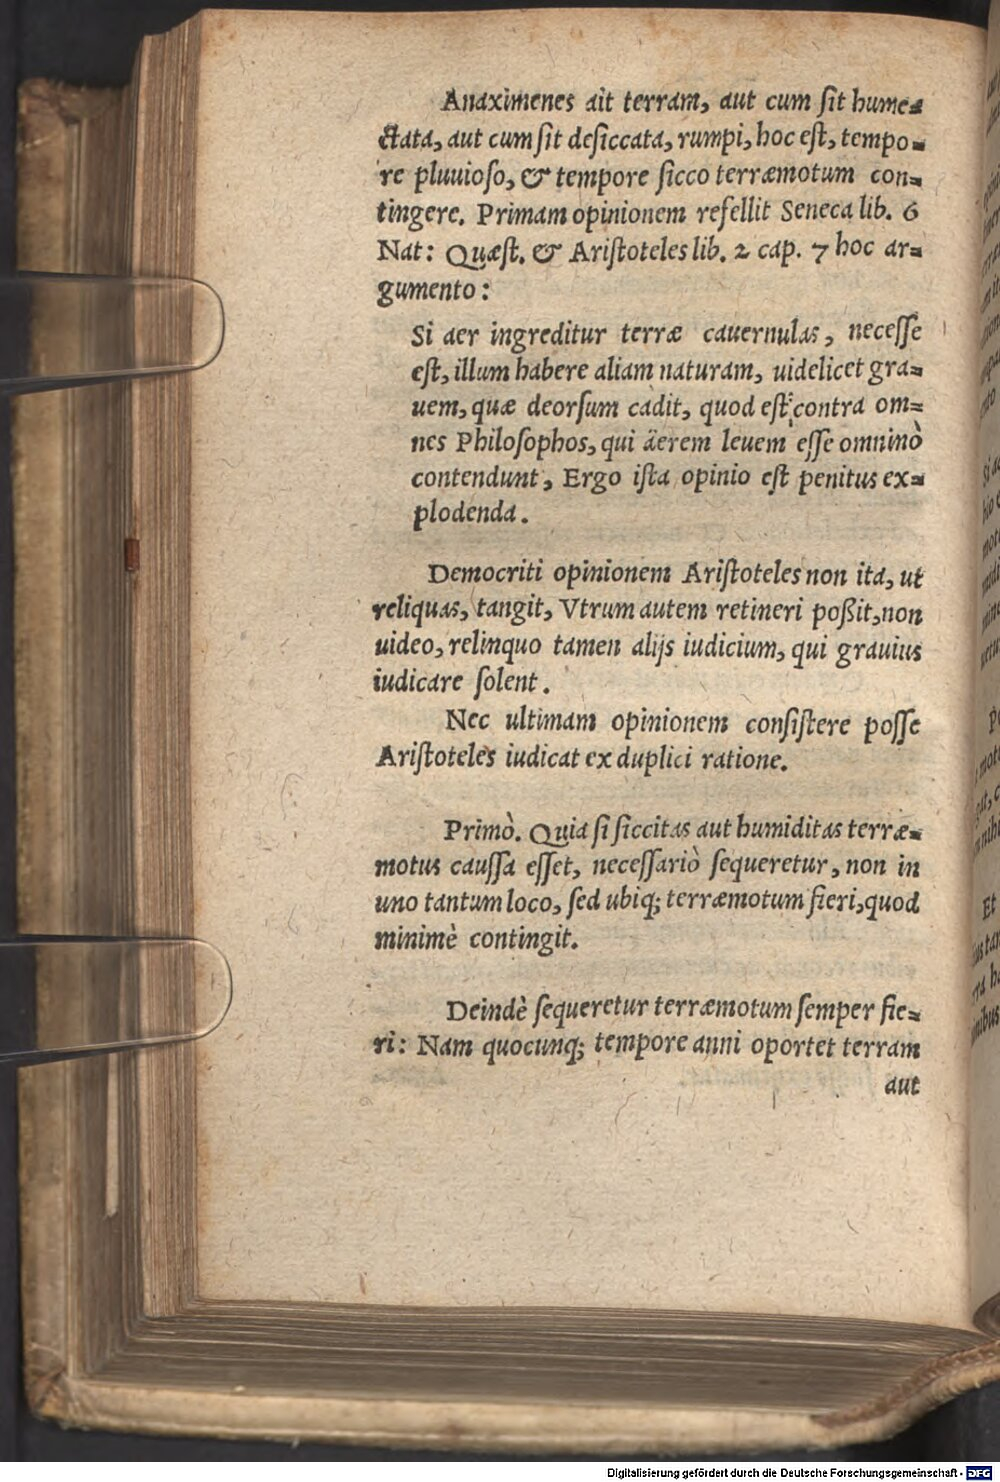 Anaximenes ait terram, aut cum sit hume⸗
ctata, aut cum sit desiccata, rumpi, hoc est, tempo⸗
re pluuioso, & tempore sicco terræmotum con⸗
tingere. Primam opinionem refellit Seneca lib. 6
Nat: Quæst. & Aristoteles lib. 2 cap. 7 hoc ar⸗
gumento:
Si aer ingreditur terræ cauernulas, necesse
est, illum habere aliam naturam, uidelicet gra⸗
uem, quæ deorsum cadit, quod est contra om⸗
nes Philosophos, qui äerem leuem esse omninò
contendunt, Ergo ista opinio est penitus ex⸗
plodenda.
Democriti opinionem Aristoteles non ita, ut
reliquas, tangit, Vtrum autem retineri poßit, non
uideo, relinquo tamen alijs iudicium, qui grauius
iudicare solent.
Nec ultimam opinionem consistere posse
Aristoteles iudicat ex duplici ratione.
Primò. Quia si siccitas aut humiditas terræ⸗
motus caussa esset, necessariò sequeretur, non in
uno tantum loco, sed ubiq; terræmotum fieri, quod
minimè contingit.
Deindè sequeretur terræmotum semper fie⸗
ri: Nam quocunq; tempore anni oportet terram
aut
Digitalisierung gefördert durch die Deutsche Forschungsgemeinschaft - DFG